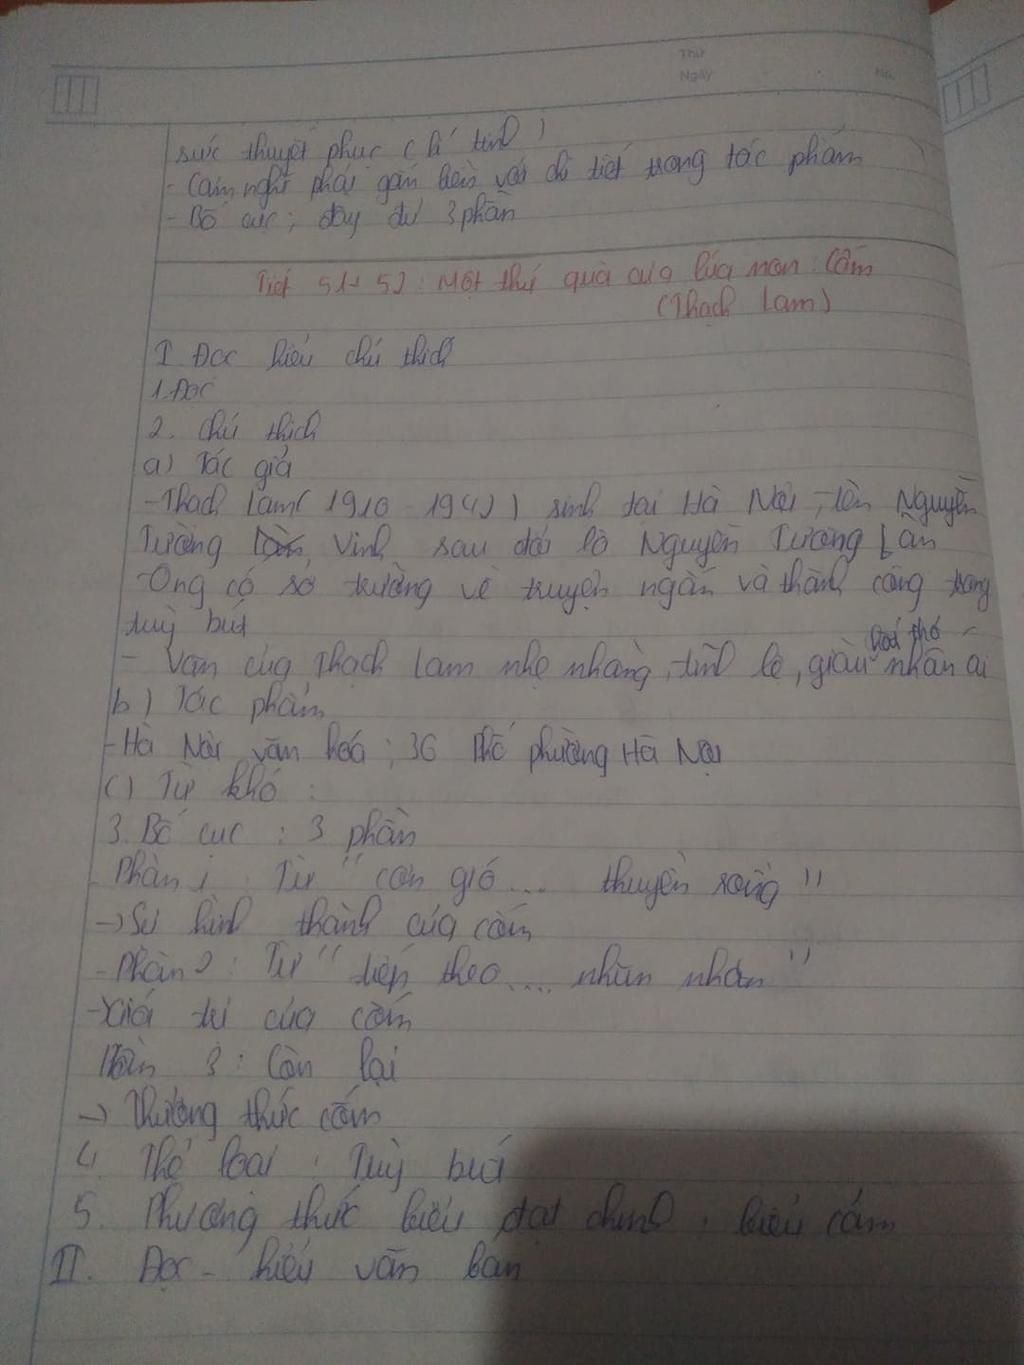 Thứ
Ngày
No.
sức thuyết phục (lí tính)
- Cảm nghĩ phải gắn liền với chi tiết trong tác phẩm
- Bố cục; đầy đủ 3 phần
Tiết 51+52: Một thứ quà của lúa non: Cốm
(Thạch Lam)
I. Đọc hiểu chú thích
1. Đọc
2. Chú thích
a) Tác giả
- Thạch Lam (1910 - 1942) sinh tại Hà Nội, tên Nguyễn
Tường Vinh, sau đổi là Nguyễn Tường Lân
- Ông có sở trường về truyện ngắn và thành công trong
tuỳ bút
- Văn của Thạch Lam nhẹ nhàng, tinh tế, giàu nhân ái
b) Tác phẩm
- Hà Nội văn hoá; 36 Phố phường Hà Nội
c) Từ khó:
3. Bố cục: 3 phần
- Phần 1: Từ "cơn gió.... thuyền rồng"
-> Sự hình thành của cốm
- Phần 2: Từ "tiếp theo.... nhũn nhặn"
-> Giá trị của cốm
Phần 3: Còn lại
-> Thưởng thức cốm
4. Thể loại: Tuỳ bút
5. Phương thức biểu đạt chính: biểu cảm
II. Đọc - hiểu văn bản